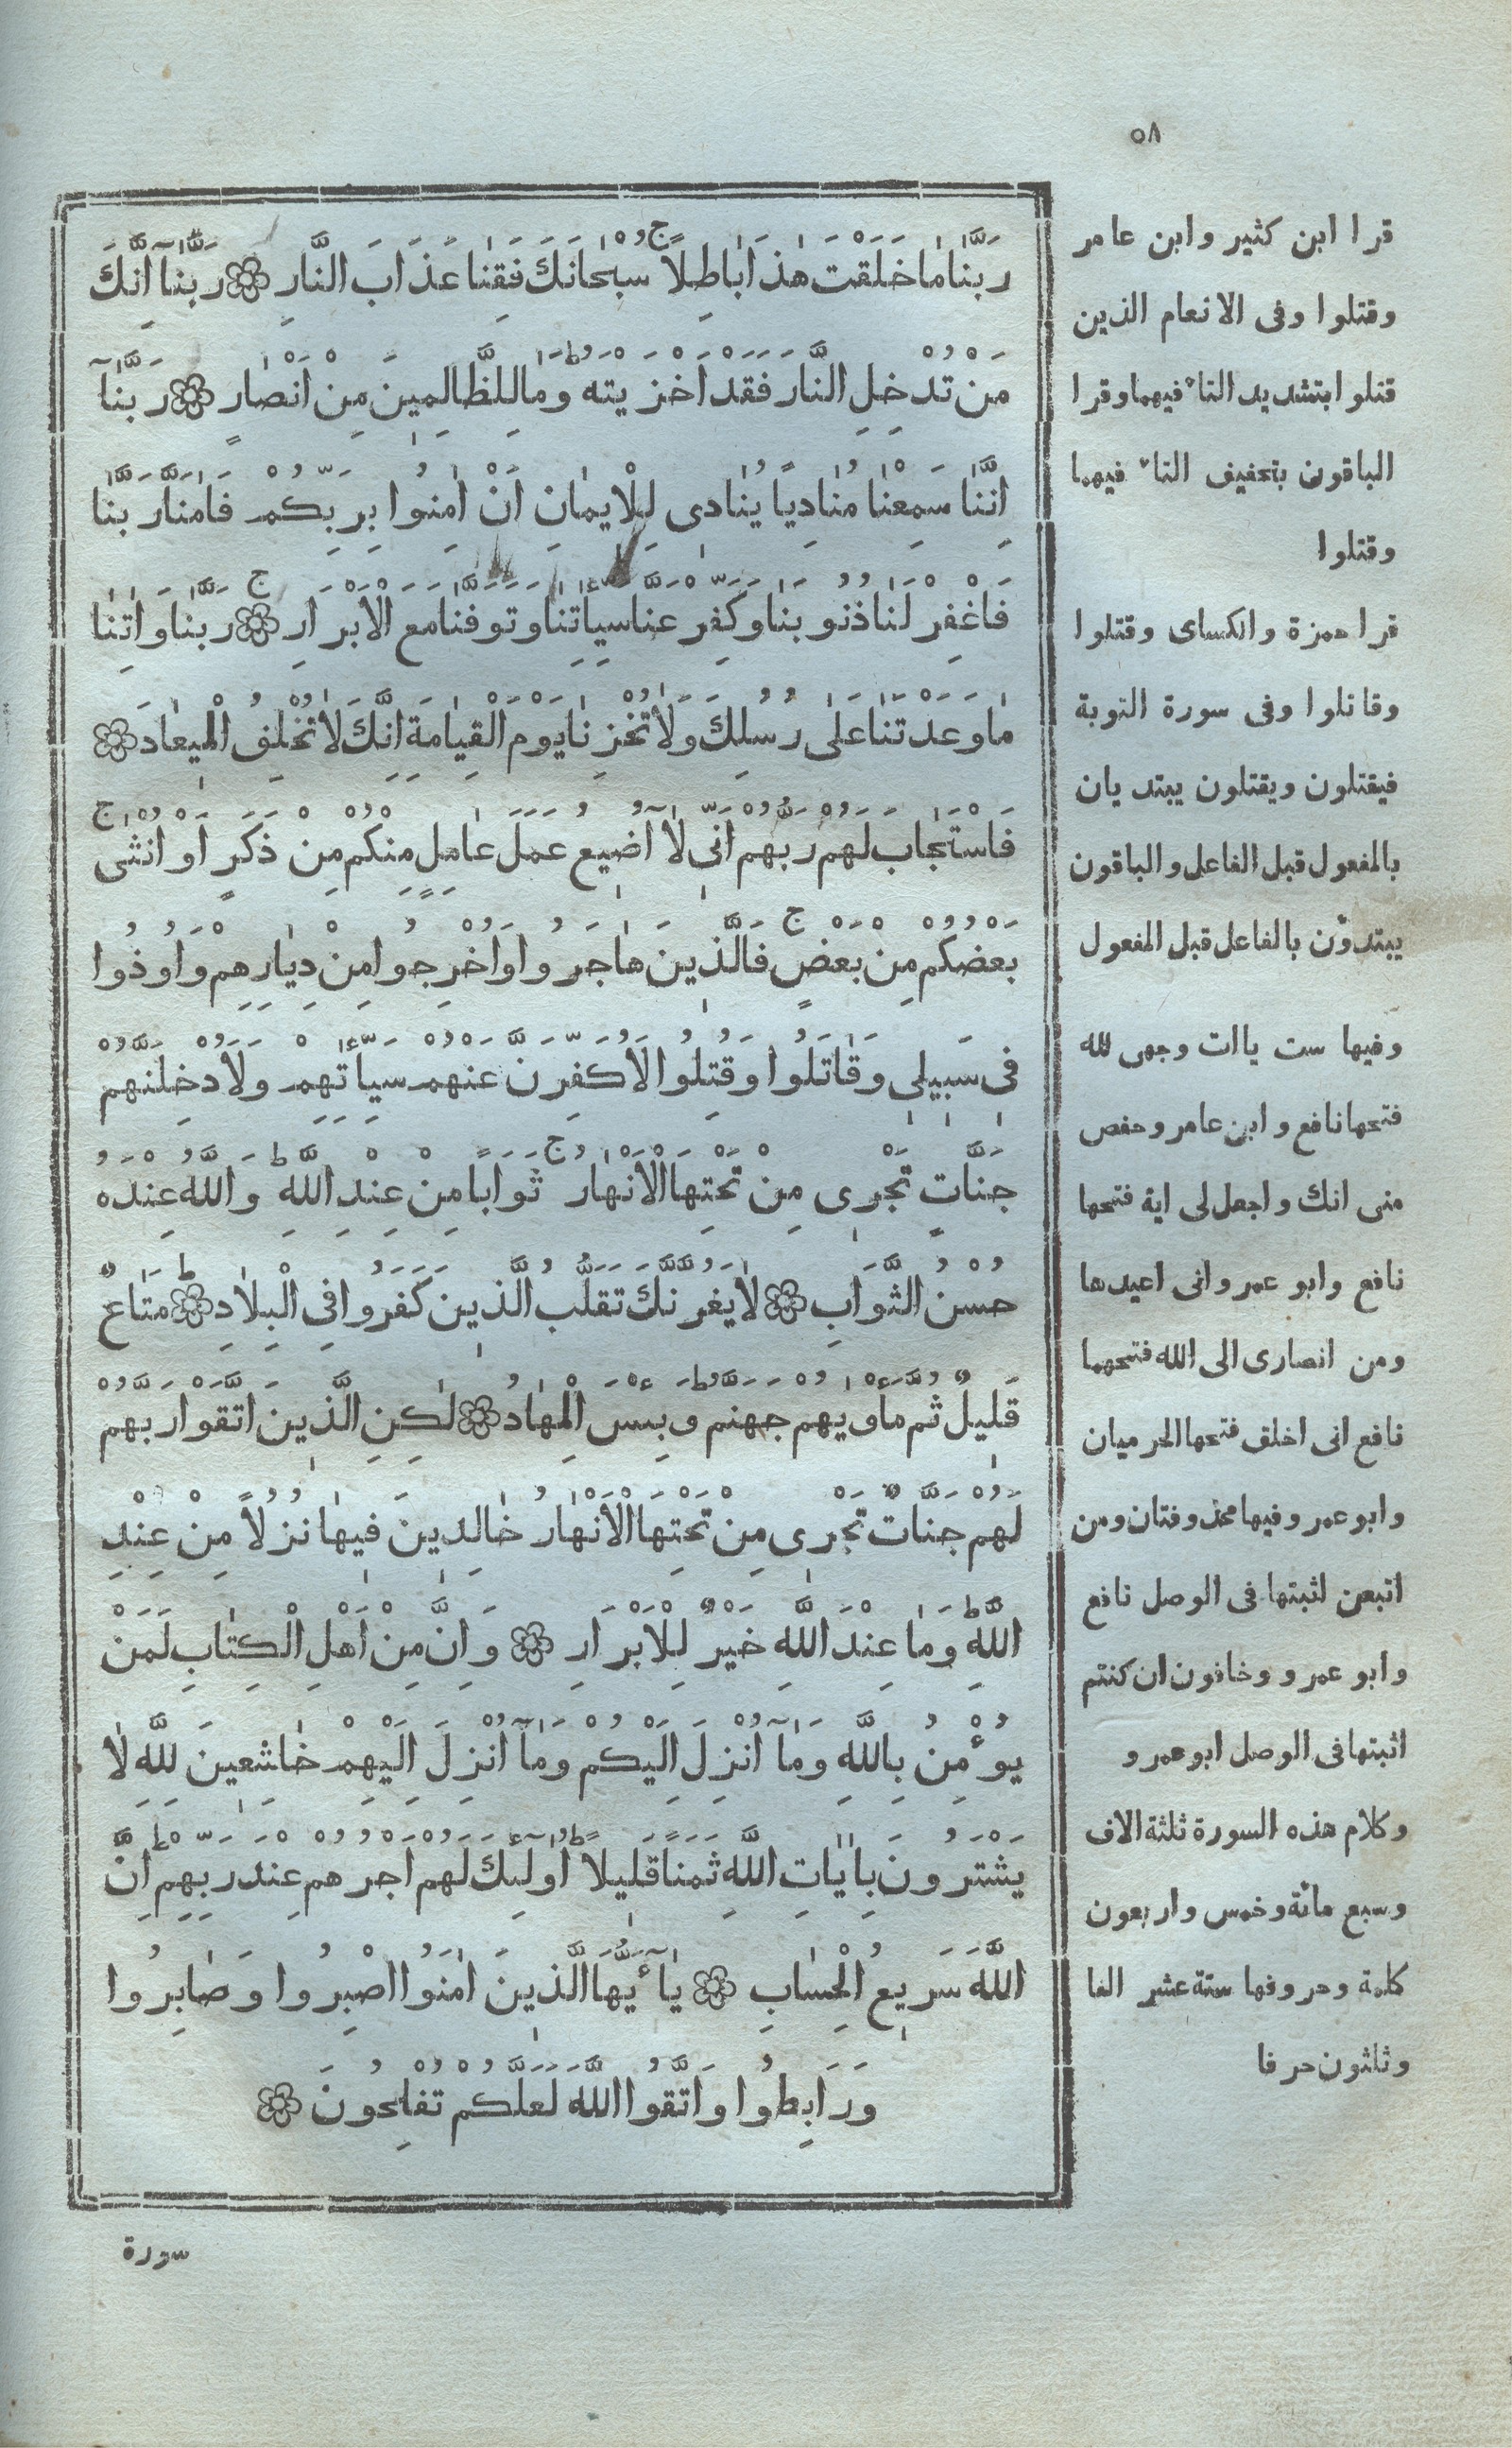 ٥٨
رَبَّنَا مَا خَلَقْتَ هٰذَا بَاطِلًا ج سُبْحَانَكَ فَقِنَا عَذَابَ النَّارِ ۞ رَبَّنَآ اِنَّكَ
مَنْ تُدْخِلِ النَّارَ فَقَدْ اَخْزَيْتَهُ ط وَمَا لِلظَّالِمِينَ مِنْ اَنْصَارٍ ۞ رَبَّنَآ
اِنَّنَا سَمِعْنَا مُنَادِيًا يُنَادِى لِلْاِيمَانِ اَنْ اٰمِنُوا بِرَبِّكُمْ فَاٰمَنَّا رَبَّنَا
فَاغْفِرْ لَنَا ذُنُوبَنَا وَكَفِّرْ عَنَّا سَيِّاٰتِنَا وَتَوَفَّنَا مَعَ الْاَبْرَارِ ج ۞ رَبَّنَا وَاٰتِنَا
مَا وَعَدْتَنَا عَلٰى رُسُلِكَ وَلَا تُخْزِنَا يَوْمَ الْقِيَامَةِ اِنَّكَ لَا تُخْلِفُ الْمِيعَادَ ۞
فَاسْتَجَابَ لَهُمْ رَبُّهُمْ اَنِّى لَآ اُضِيعُ عَمَلَ عَامِلٍ مِنْكُمْ مِنْ ذَكَرٍ اَوْ اُنْثٰى ج
بَعْضُكُمْ مِنْ بَعْضٍ ج فَالَّذِينَ هَاجَرُوا وَاُخْرِجُوا مِنْ دِيَارِهِمْ وَاُوذُوا
فِى سَبِيلِى وَقَاتَلُوا وَقُتِلُوا لَاُكَفِّرَنَّ عَنْهُمْ سَيِّاٰتِهِمْ وَلَاُدْخِلَنَّهُمْ
جَنَّاتٍ تَجْرِى مِنْ تَحْتِهَا الْاَنْهَارُ ج ثَوَابًا مِنْ عِنْدِ اللّٰهِ ط وَاللّٰهُ عِنْدَهُ
حُسْنُ الثَّوَابِ ۞ لَا يَغُرَّنَّكَ تَقَلُّبُ الَّذِينَ كَفَرُوا فِى الْبِلَادِ ط ۞ مَتَاعٌ
قَلِيلٌ ثُمَّ مَأْوٰيهُمْ جَهَنَّمُ ط وَبِئْسَ الْمِهَادُ ۞ لٰكِنِ الَّذِينَ اتَّقَوْا رَبَّهُمْ
لَهُمْ جَنَّاتٌ تَجْرِى مِنْ تَحْتِهَا الْاَنْهَارُ خَالِدِينَ فِيهَا نُزُلًا مِنْ عِنْدِ
اللّٰهِ ط وَمَا عِنْدَ اللّٰهِ خَيْرٌ لِلْاَبْرَارِ ۞ وَاِنَّ مِنْ اَهْلِ الْكِتَابِ لَمَنْ
يُؤْمِنُ بِاللّٰهِ وَمَآ اُنْزِلَ اِلَيْكُمْ وَمَآ اُنْزِلَ اِلَيْهِمْ خَاشِعِينَ لِلّٰهِ لَا
يَشْتَرُونَ بِاٰيَاتِ اللّٰهِ ثَمَنًا قَلِيلًا ط اُولٰٓئِكَ لَهُمْ اَجْرُهُمْ عِنْدَ رَبِّهِمْ ط اِنَّ
اللّٰهَ سَرِيعُ الْحِسَابِ ۞ يَآ اَيُّهَا الَّذِينَ اٰمَنُوا اصْبِرُوا وَصَابِرُوا
وَرَابِطُوا وَاتَّقُوا اللّٰهَ لَعَلَّكُمْ تُفْلِحُونَ ۞
قرا ابن كثير وابن عامر
وقتلوا وفى الانعام الذين
قتلوا بتشديد التاء فيهما وقرا
الباقون بتخفيف التاء فيهما
وقتلوا
قرا حمزة والكساى وقتلوا
وقاتلوا وفى سورة التوبة
فيقتلون ويقتلون يبتديان
بالمفعول قبل الفاعل والباقون
يبتدؤن بالفاعل قبل المفعول
وفيها ست ياات وجهى لله
فتحها نافع وابن عامر وحفص
منى انك واجعل لى اية فتحها
نافع وابو عمرو انى اعيدها
ومن انصارى الى الله فتحهما
نافع انى اخلق فتحها الحرميان
وابو عمرو وفيها محذوفتان ومن
اتبعن اثبتها فى الوصل نافع
وابو عمرو وخافون ان كنتم
اثبتها فى الوصل ابو عمرو
وكلام هذه السورة ثلثة الاف
وسبع مائة وخمس واربعون
كلمة وحروفها ستة عشر الفا
وثلثون حرفا
سورة